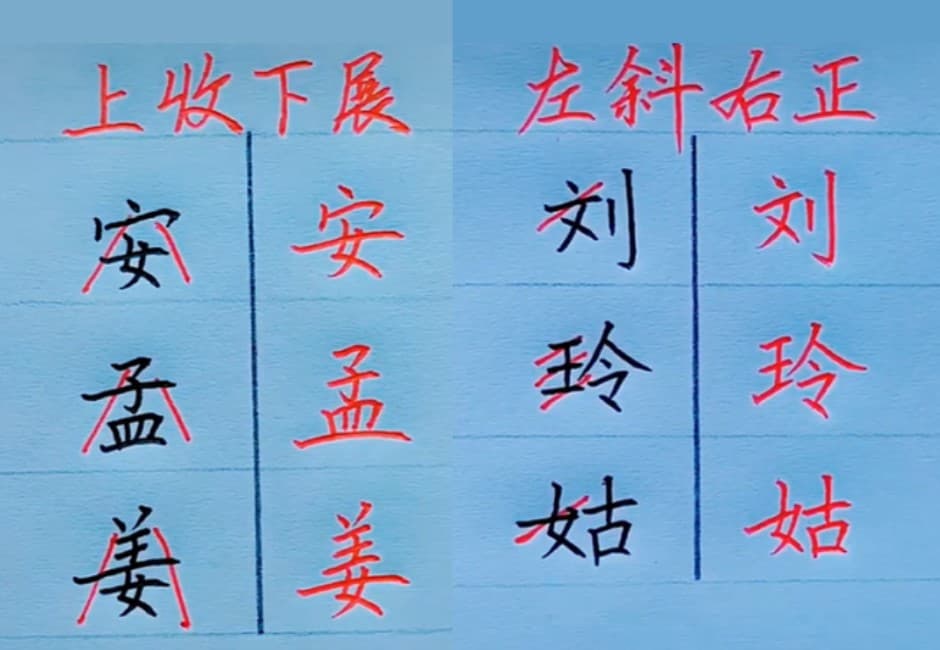 上收下展
安 安
孟 孟
姜 姜
左斜右正
刘 刘
玲 玲
姑 姑